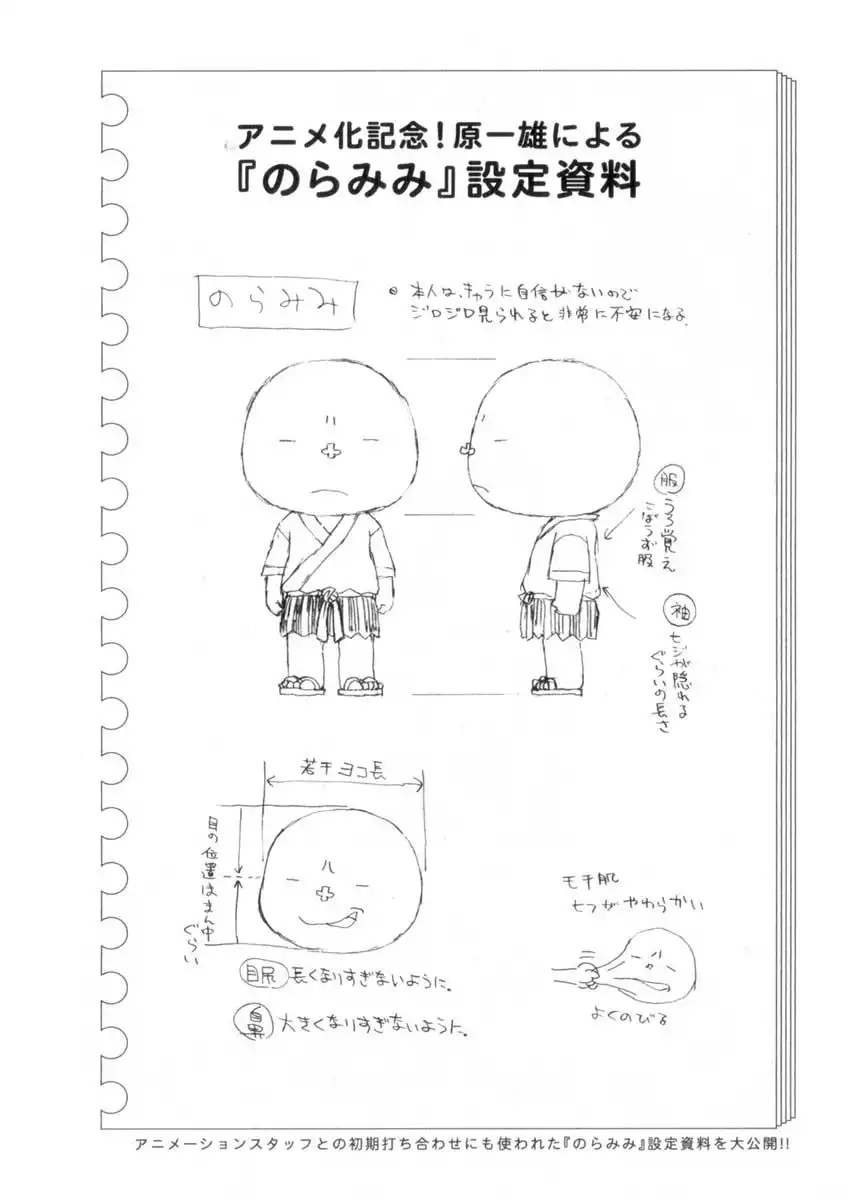 アニメ化記念！原一雄による
『のらみみ』設定資料
のらみみ
◎ 本人は、きゃらに自信がないので
ジロジロ見られると非常に不安になる。
服
うろ覚え
こぼうず服
袖
ヒジが隠れる
ぐらいの長さ
若干ヨコ長
目の位置はまん中
ぐらい
目尻 長くなりすぎないように。
鼻 大きくなりすぎないように。
モチ肌
ヒフがやわらかい
よくのびる
アニメーションスタッフとの初期打ち合わせにも使われた『のらみみ』設定資料を大公開!!